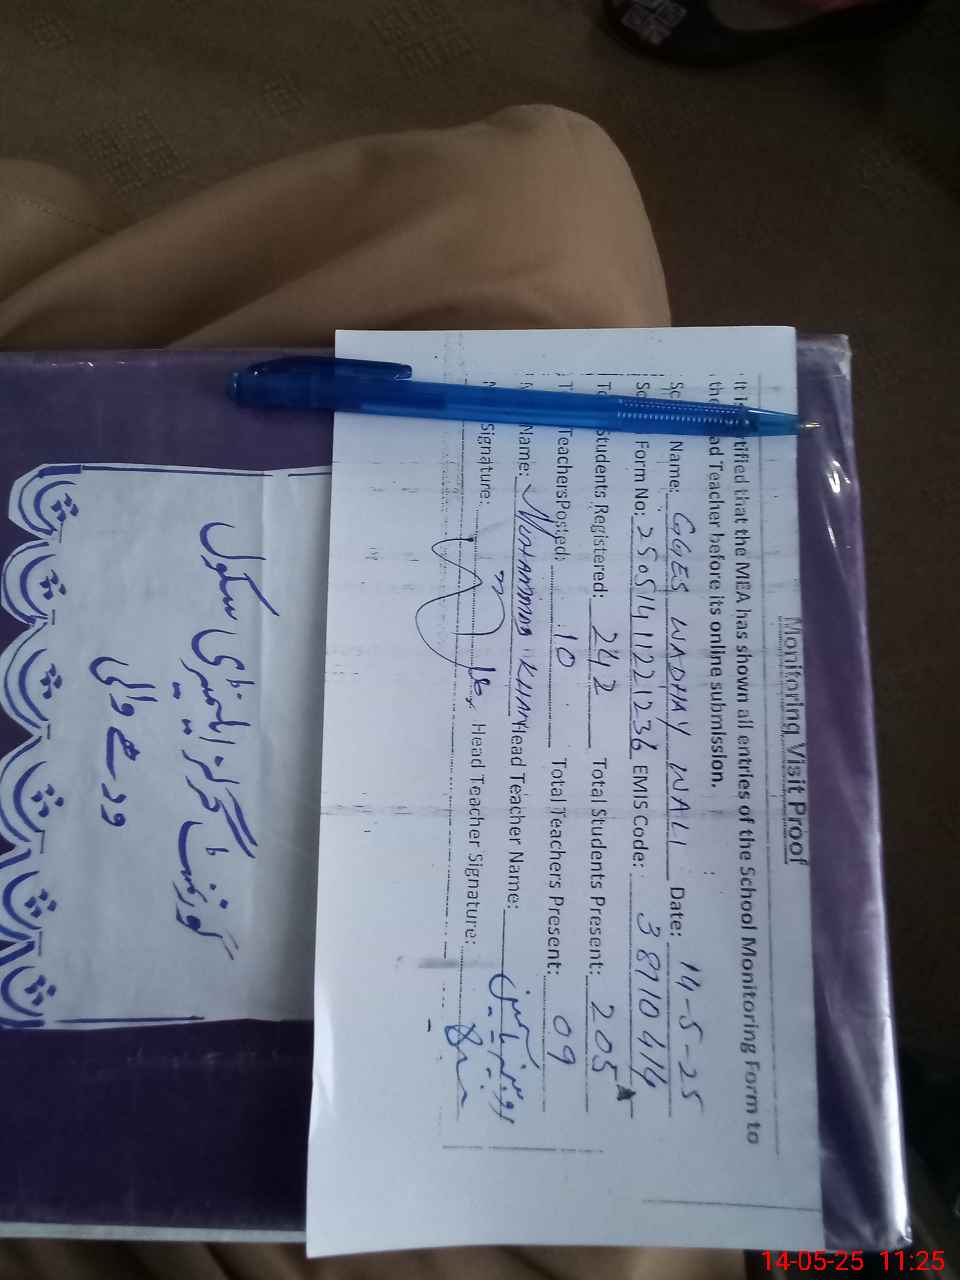 Monitoring Visit Proof
It is certified that the MEA has shown all entries of the School Monitoring Form to
the Head Teacher before its online submission.
Name: GGES WADHAY WALI Date: 14-5-25
Form No: 25051411221236 EMIS Code: 38710414
Students Registered: 242 Total Students Present: 205
TeachersPosted: 10 Total Teachers Present: 09
Name: MUHAMMAD KHAN Head Teacher Name: روبینہ یاسمین
Signature: Head Teacher Signature:
گورنمنٹ گرلز ایلیمنٹری سکول
ودھے والی
14-05-25 11:25